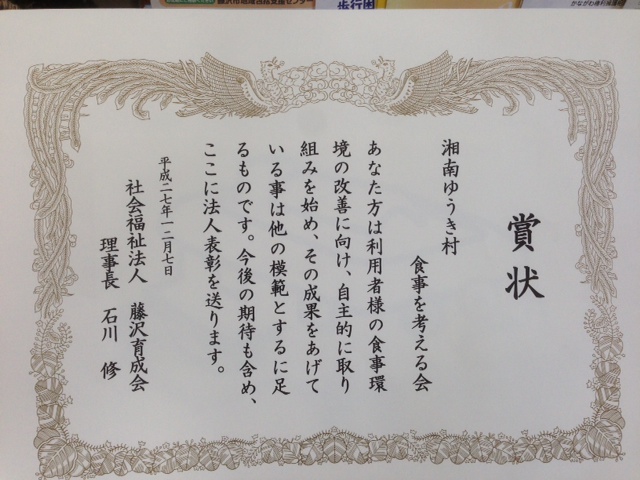 賞状
湘南ゆうき村
食事を考える会
あなた方は利用者様の食事環
境の改善に向け、自主的に取り
組みを始め、その成果をあげて
いる事は他の模範とするに足
るものです。今後の期待も含め、
ここに法人表彰を送ります。
平成二七年一二月七日
社会福祉法人 藤沢育成会
理事長 石川 修